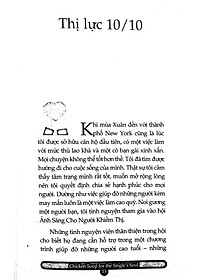 Thị lực 10/10
Khi mùa Xuân đến với thành
phố New York cũng là lúc
tôi được sở hữu căn hộ đầu tiên, có một việc làm
với mức thù lao khá và một cô bạn gái xinh xắn.
Mọi chuyện không thể tốt hơn thế. Tôi đã tìm được
hướng đi cho cuộc sống của mình. Thật sự tôi cảm
thấy tâm trạng mình rất tốt, muốn mở rộng lòng
nên tôi quyết định chia sẻ hạnh phúc cho mọi
người. Dường như việc giúp đỡ những người kém
may mắn luôn là một việc làm cao quý. Noi gương
một người bạn, tôi tình nguyện tham gia vào hội
Ánh Sáng Cho Người Khiếm Thị.
Những tình nguyện viên thân thiện trong hội
cho biết họ đang cần hỗ trợ trong một chương
trình giúp đỡ những người cao tuổi – những
Chicken Soup for the Single's Soul